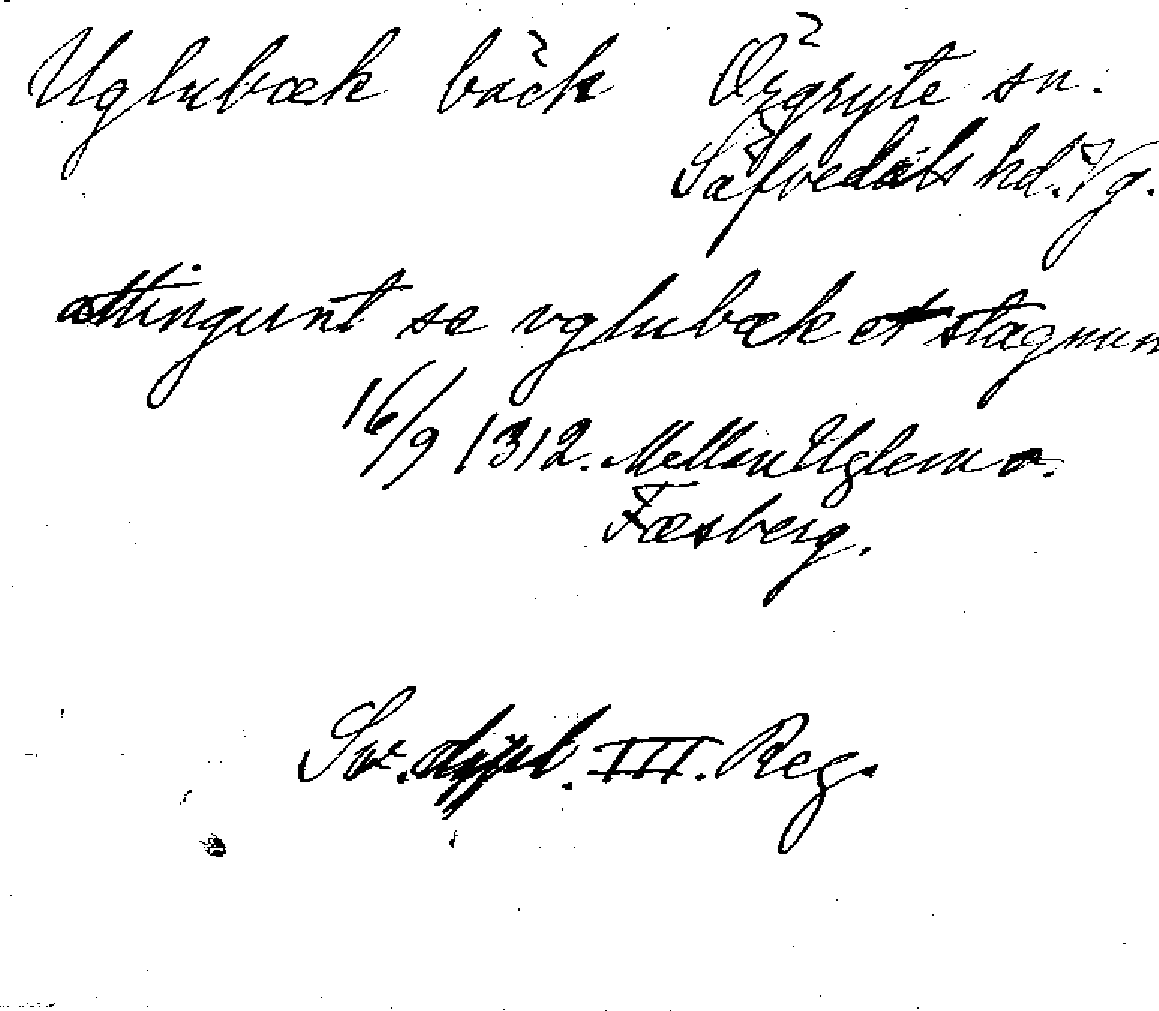 Uglubæk bäck Örgryte sn.
Säfvedals hd. Vg.
attingunt se vglubæk et stagnum
16/9 1312. Mellan Uglem o.
Fæsberg.
Sv. dipl. III. Reg.